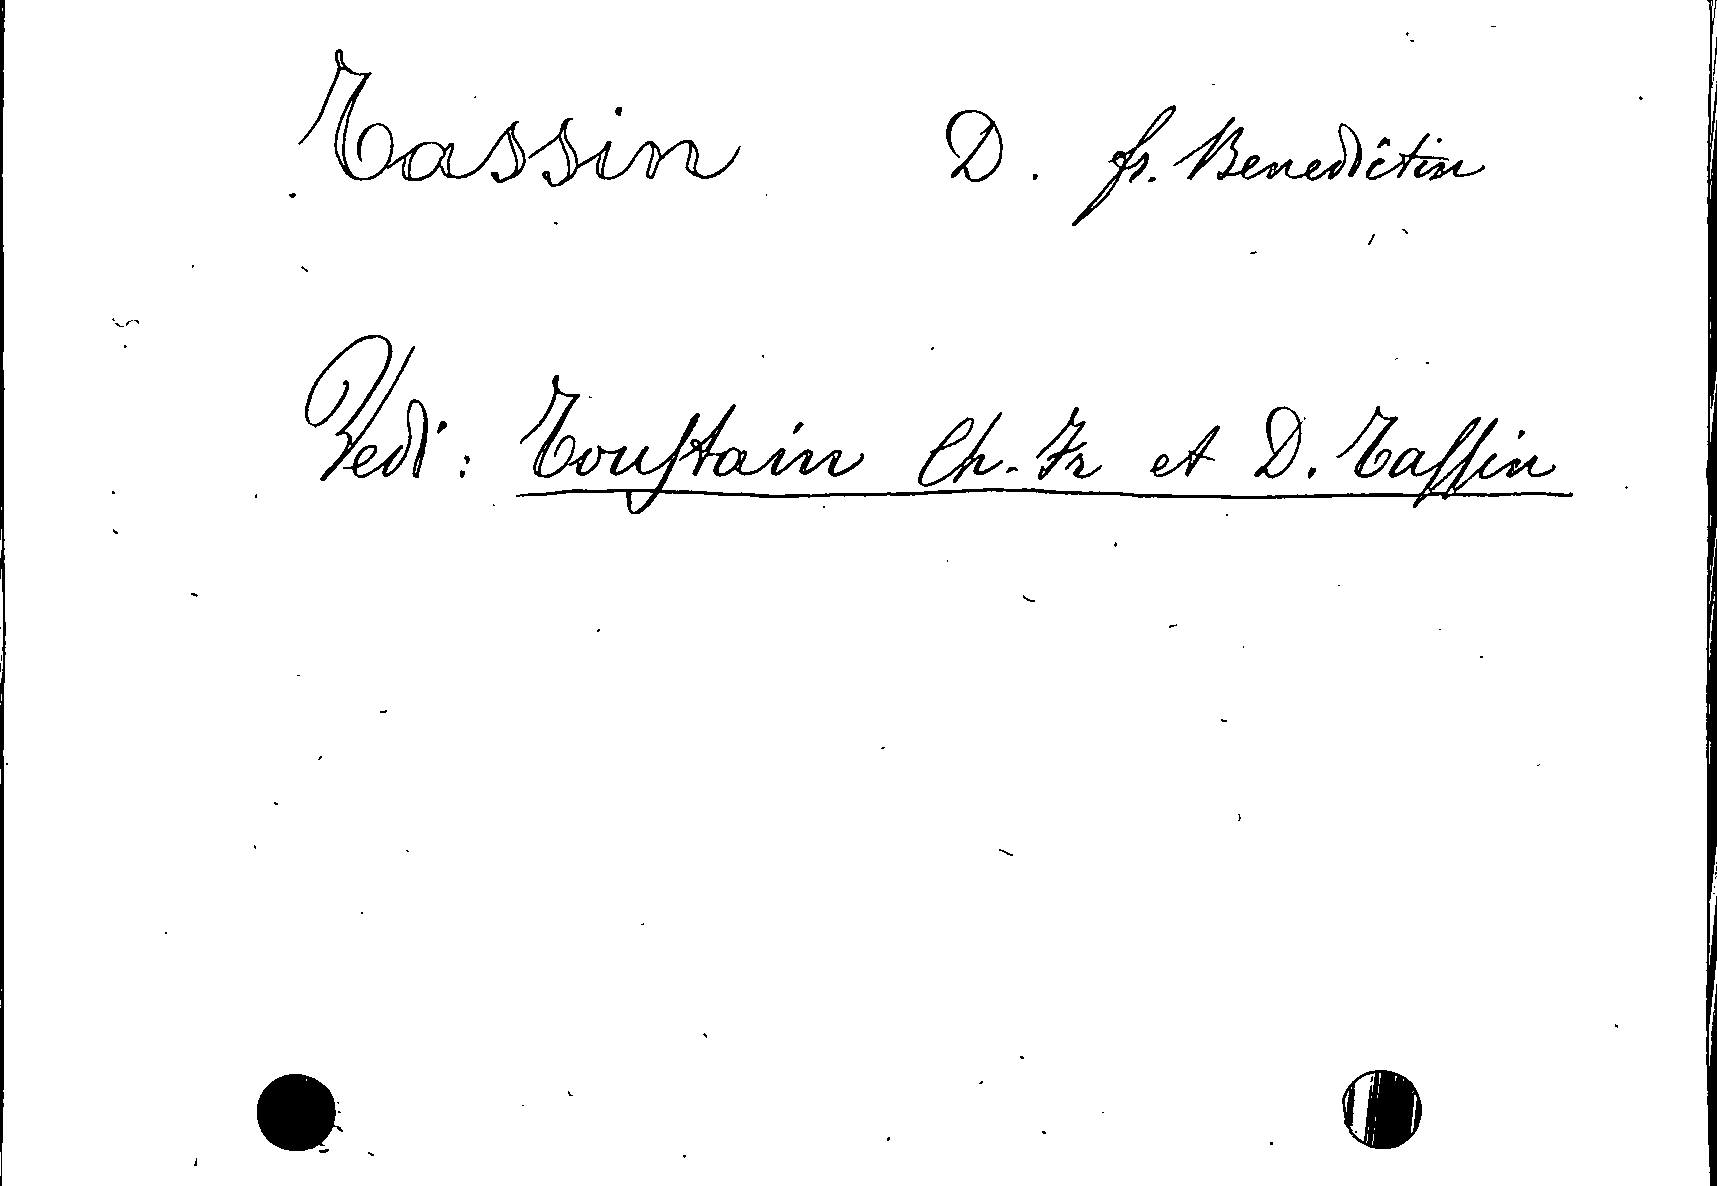 Tassin D. fr. Benedictin
Vedi: Touſtain Ch. Fr et D. Taſſin